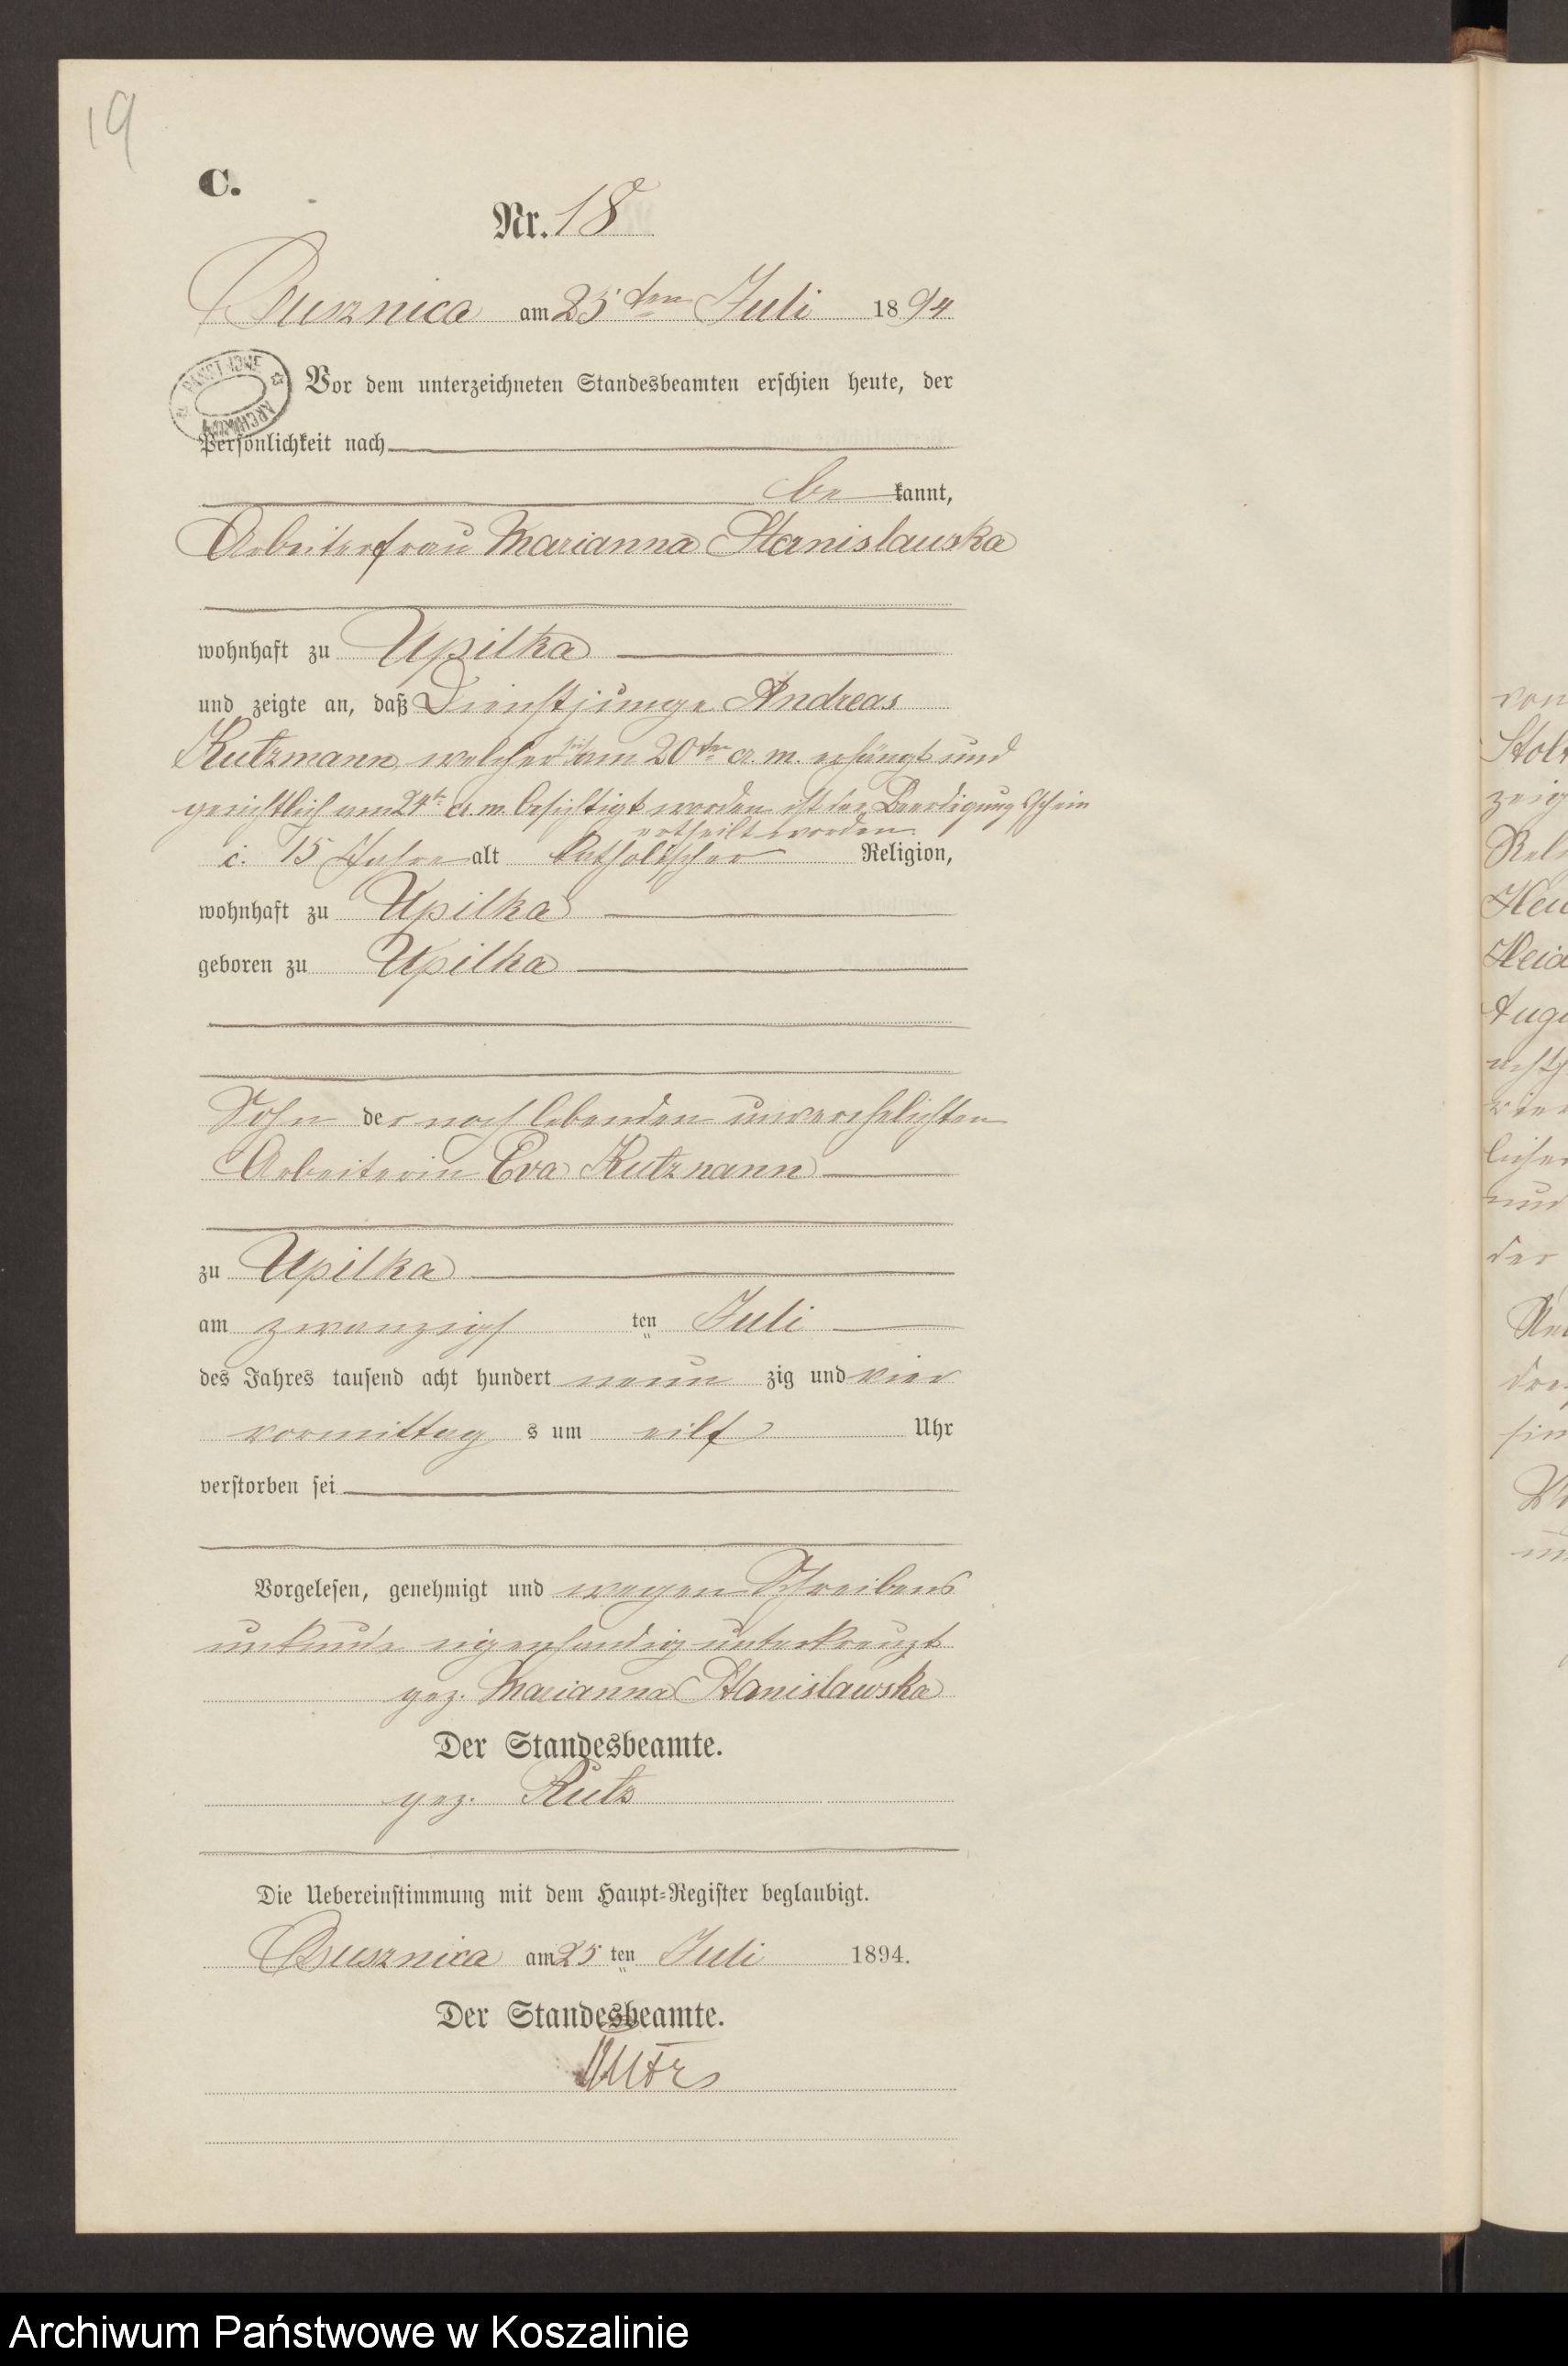 19
C.
Nr. 18
Brusznica am 25ten Juli 1894
PAŃSTWOWE ARCHIWUM
Vor dem unterzeichneten Standesbeamten erschien heute, der
Persönlichkeit nach
be kannt,
Arbeiterfrau Marianna Stanislauska
wohnhaft zu Upilka
und zeigte an, daß Dienstjunge Andreas
Kutzmann, welcher sich am 20ten cr. m. erhängt und
gerichtlich am 24t. cr. m. besichtigt worden ist der Beerdigungsschein
ertheilt worden.
c. 15 Jahre alt katholischer Religion,
wohnhaft zu Upilka
geboren zu Upilka
Sohn der noch lebenden unverehelichten
Arbeiterin Eva Kutzmann
zu Upilka
am zwanzigs ten Juli
des Jahres tausend acht hundert neun zig und vier
vormittag s um eilf Uhr
verstorben sei
Vorgelesen, genehmigt und wegen Schreibens
unkunde eigenhändig unterkreuzt
gez. Marianna Stanislawska
Der Standesbeamte.
gez. Rutz
Die Uebereinstimmung mit dem Haupt-Register beglaubigt.
Brusznica am 25 ten Juli 1894.
Der Standesbeamte.
Rutz
von
zeig
der
Archiwum Państwowe w Koszalinie